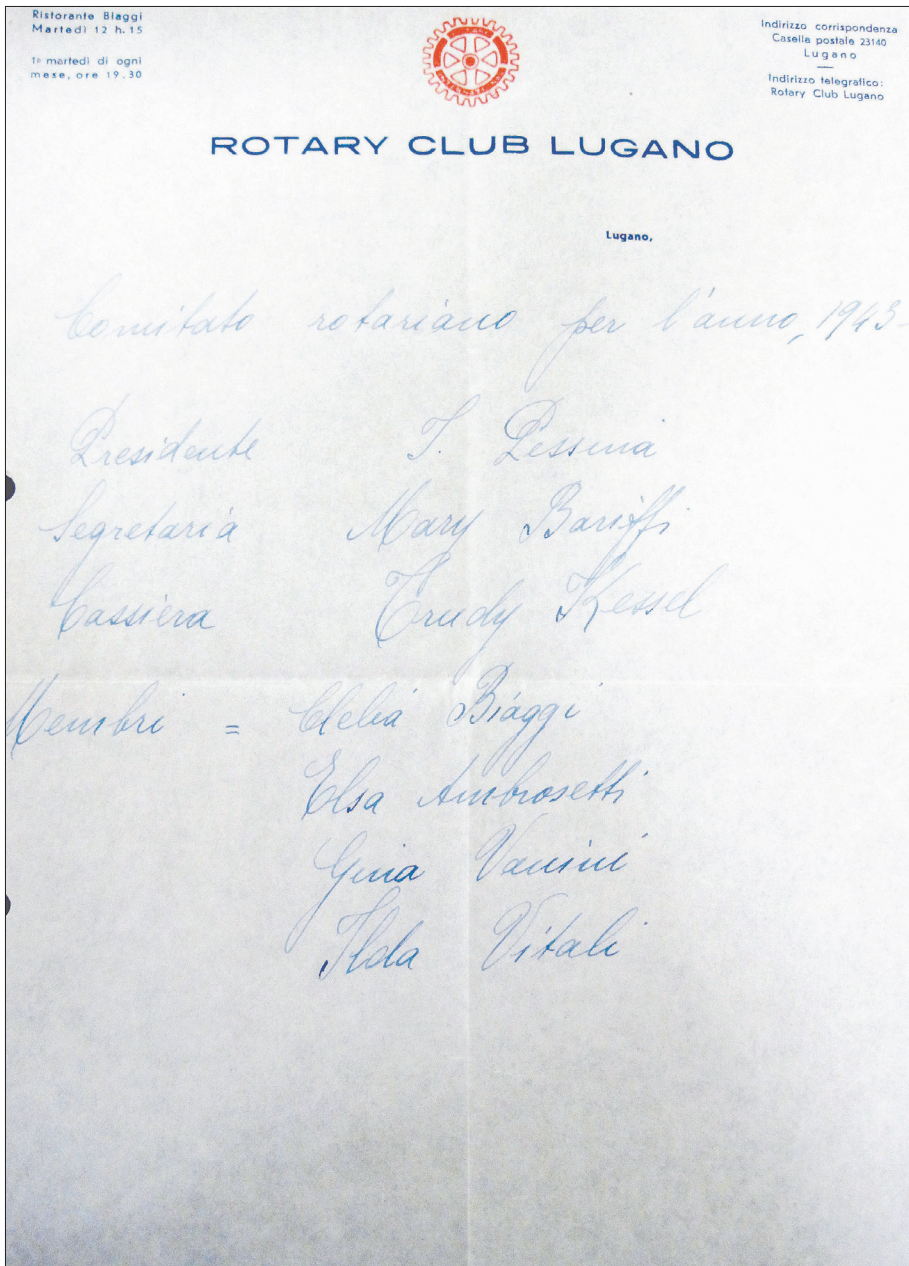 Ristorante Biaggi
Martedì 12 h. 15
1º martedì di ogni
mese, ore 19.30
ROTARY
INTERNATIONAL
Indirizzo corrispondenza
Casella postale 23140
Lugano
Indirizzo telegrafico:
Rotary Club Lugano
ROTARY CLUB LUGANO
Lugano,
Comitato rotariano per l'anno, 1943-
Presidente I. Pessina
Segretaria Mary Bariffi
Cassiera Trudy Kessel
Membri = Clelia Biaggi
Elsa Ambrosetti
Gina Vanini
Ilda Vitali